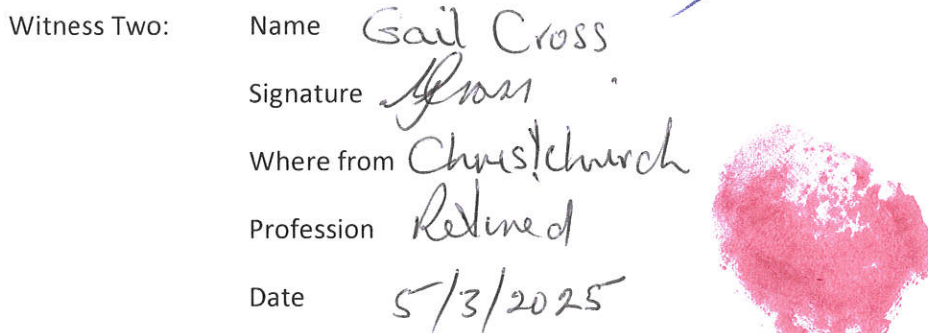 Witness Two: Name Gail Cross
Signature GCross
Where from Christchurch
Profession Retired
Date 5/3/2025